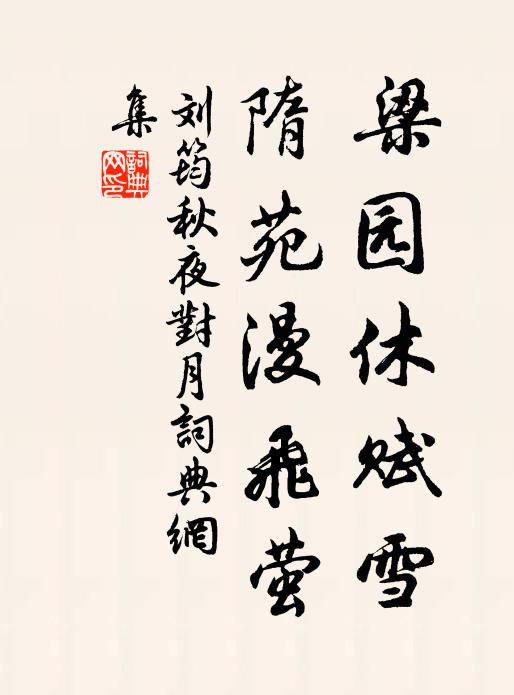 梁园休赋雪
隋苑漫飛萤
刘筠秋夜對月詞典網
集
詞典
网印